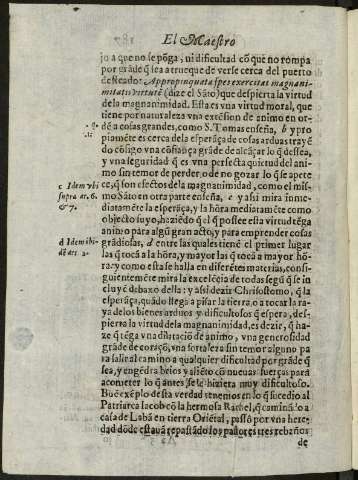 El Maestro
jo a que no se põga, ni dificultad cõ que no rompa
por grãde q̃ sea a trueque de verse cerca del puerto
desseado: Appropinquata spes exercitat magnani-
mitatis virtutẽ (dize el Sãto) que despierta la virtud
de la magnanimidad. Esta es vna virtud moral, que
tiene por naturaleza vna extẽsion de animo en or-
dẽ a cosas grandes, como S. Tomas enseña, b y pro
piamẽte es cerca dela esperãça de cosas arduas trayẽ
do cõsigo vna cõfiãça grãde de alcãçar lo q̃ dessea,
y vna seguridad q̃ es vna perfecta quietud del ani-
mo sin temor de perder, o de no gozar lo que se apete
ce, q̃ son efectos dela magnanimidad, como el mis-
mo Sãto en otra parte enseña, c y assi mira inme-
diatamẽte la esperãça, y la hõra mediatamẽte como
objecto suyo, haziẽdo q̃ el q̃ possee esta virtud tẽga
animo para algũ gran acto, y para emprender cosas
grãdiosas, d entre las quales tiene el primer lugar
las q̃ tocã a la hõra, y mayor las q̃ tocã a mayor hõ-
ra: y como esta se halla en diferẽtes materias, consi-
guientemẽte mira la excelẽcia de todas segũ q̃ se in
cluyẽ debaxo della: y assi dezir Chrisostomo, q̃ la
esperãça, quãdo llega a pisar la tierra, o a tocar la ra-
ya delos bienes arduos y dificultosos q̃ espera, des-
pierta la virtud dela magnanimidad, es dezir, q̃ ha-
ze q̃ tẽga vna dilatació de animo, vna generosidad
grãde de coraçõ, vna fortaleza sin temor alguno pa
ra salir al camino a qualquier dificultad por grãde q̃
sea, y engẽdra brios y aliẽto cõ nueuas fuerças para
acometer lo q̃ antes se le hiziera muy dificultoso.
Buẽ exẽplo desta verdad tenemos en lo q̃ sucedio al
Patriarca Iacob cõ la hermosa Rachel, q̃ caminãdo a
casa de Labã en tierra Oriẽtal, passò por vna here-
dad dõde estauã repastãdo los pastores tres rebaños
de
c Idem vbi
supra ar. 6.
& 7.
d Idem ibi-
dẽ art. 2.